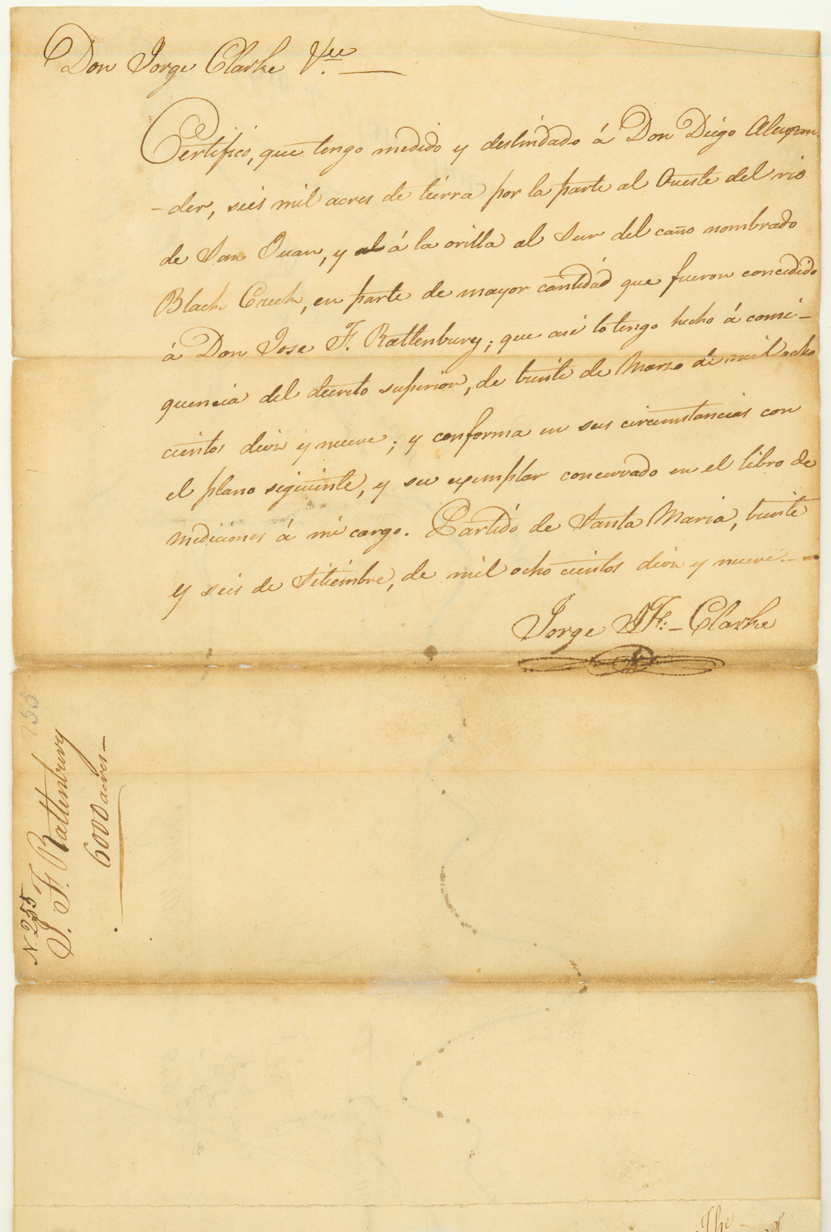 Don Jorge Clarke &cc.
Certifico, que tengo medido y deslindado á Don Diego Alexan-
-der, seis mil acres de tierra por la parte al Oueste del rio
de San Juan, y á la orilla al Sur del caño nombrado
Black Creek, en parte de mayor cantidad que fueron concedido
á Don Jose F. Rattenbury; que asi lo tengo hecho á conse-
quencia del decreto superior, de treinte de Marzo de mil ocho
cientos diez y nueve; y conforma en sus circumstancias con
el plano siguiente, y su exemplar concervado en el libro de
mediciones á mi cargo. Partido de Santa Maria, treinte
y seis de Setiembre, de mil ocho cientos diez y nueve.—
Jorge J. F. Clarke
255
N. 255
J. F. Rattenbury
6000 acres—
The